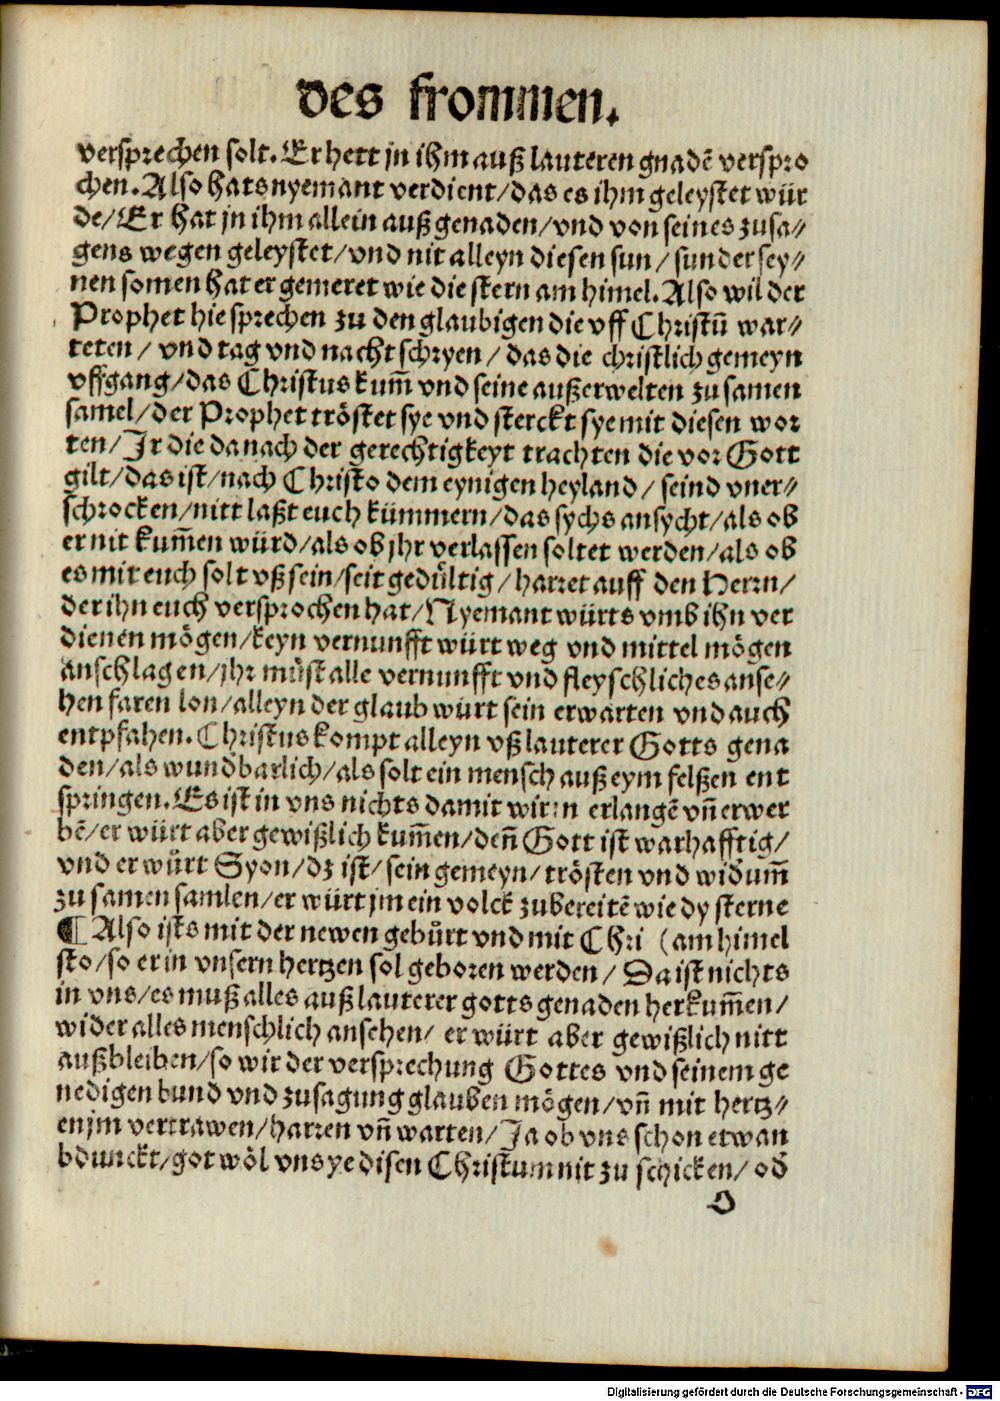 des frommen.
versprechen solt. Er hett jn ihm auß lauteren gnadē verspro
chen. Also hats nyemant verdient/ das es ihm geleystet wür
de/ Er hat jn ihm allein auß genaden/ vnd von seines zusa⸗
gens wegen geleystet/ vnd nit alleyn diesen sun/ sunder sey⸗
nen somen hat er gemeret wie die stern am himel. Also wil der
Prophet hie sprechen zu den glaubigen die vff Christū war⸗
teten/ vnd tag vnd nacht schryen/ das die christlich gemeyn
vffgang/ das Christus kum̄ vnd seine außerwelten zu samen
samel/ der Prophet tröstet sye vnd sterckt sye mit diesen wor
ten/ Ir die da nach der gerechtigkeyt trachten die vor Gott
gilt/ das ist/ nach Christo dem eynigen heyland/ seind vner⸗
schrocken/ nitt laßt euch kümmern/ das sychs ansycht/ als ob
er nit kum̄en würd/ als ob jhr verlassen soltet werden/ als ob
es mit euch solt vß sein/ seit gedůltig/ harret auff den Herrn/
der ihn euch versprochen hat/ Nyemant würts vmb ihn ver
dienen mögen/ keyn vernunfft würt weg vnd mittel mögen
anschlagen/ jhr müst alle vernunfft vnd fleyschliches anse⸗
hen faren lon/ alleyn der glaub würt sein erwarten vnd auch
entpfahen. Christus kompt alleyn vß lauterer Gotts gena
den/ als wundbarlich/ als solt ein mensch auß eym felßen ent
springen. Es ist in vns nichts damit wir in erlangē vn̄ erwer
bē/ er würt aber gewißlich kum̄en/ den̄ Gott ist warhafftig/
vnd er würt Syon/ dz ist/ sein gemeyn/ trösten vnd widum̄
zu samen samlen/ er würt jm ein volck zubereitē wie dy sterne
¶ Also ists mit der newen gebürt vnd mit Chri (am himel
sto/ so er in vnsern hertzen sol geboren werden/ Da ist nichts
in vns/ es muß alles auß lauterer gotts genaden herkum̄en/
wider alles menschlich ansehen/ er würt aber gewißlich nitt
außbleiben/ so wir der versprechung Gottes vnd seinem ge
nedigen bund vnd zusagung glauben mögen/ vn̄ mit hertz⸗
en jm vertrawen/ harren vn̄ warten/ Ja ob vns schon etwan
bdunckt/ got wöl vns ye disen Christum nit zu schicken/ od̄
Digitalisierung gefördert durch die Deutsche Forschungsgemeinschaft - DFG